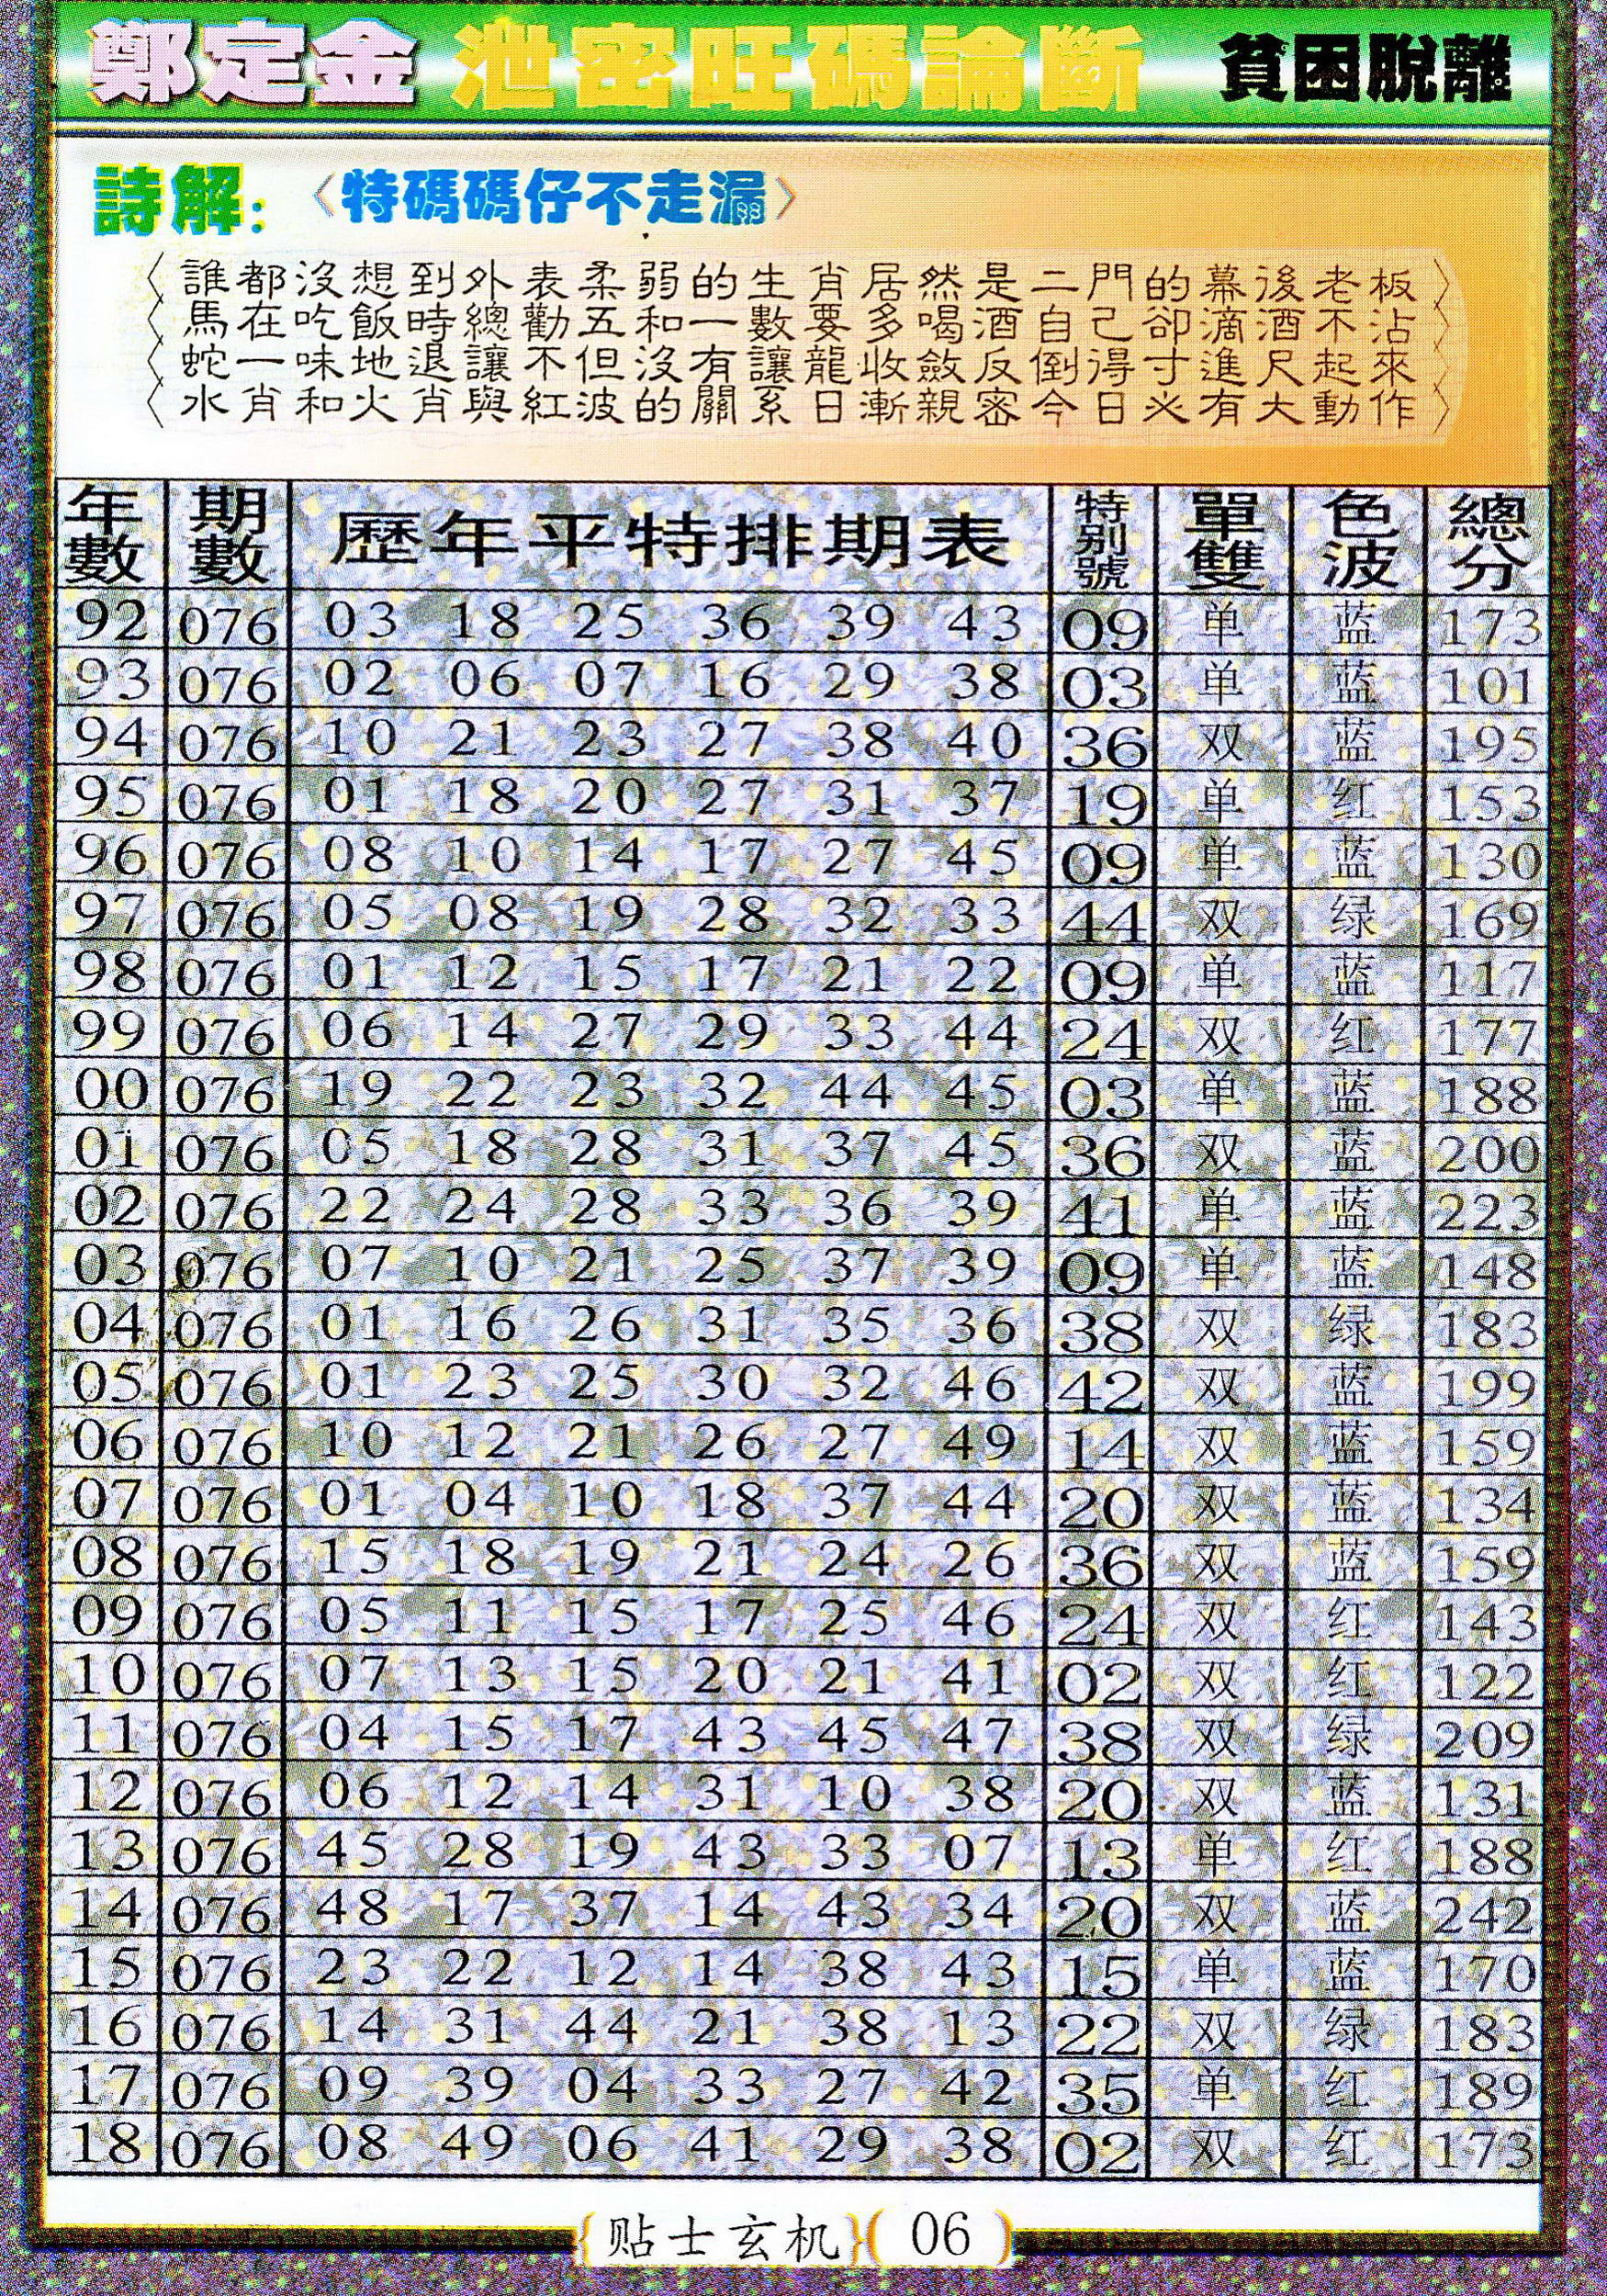 鄭定金 泄密旺碼論斷 貧困脫離
詩解: 〈特碼碼仔不走漏〉
〈誰都沒想到外表柔弱的生肖居然是二門的幕後老板〉
〈馬在吃飯時總勸五和一數要多喝酒自己卻滴酒不沾〉
〈蛇一味地退讓不但沒有讓龍收斂反倒得寸進尺起來〉
〈水肖和火肖與紅波的關系日漸親密今日必有大動作〉
年數 期數 歷年平特排期表 特别號 單雙 色波 總分
92 076 03 18 25 36 39 43 09 单 蓝 173
93 076 02 06 07 16 29 38 03 单 蓝 101
94 076 10 21 23 27 38 40 36 双 蓝 195
95 076 01 18 20 27 31 37 19 单 红 153
96 076 08 10 14 17 27 45 09 单 蓝 130
97 076 05 08 19 28 32 33 44 双 绿 169
98 076 01 12 15 17 21 22 09 单 蓝 117
99 076 06 14 27 29 33 44 24 双 红 177
00 076 19 22 23 32 44 45 03 单 蓝 188
01 076 05 18 28 31 37 45 36 双 蓝 200
02 076 22 24 28 33 36 39 41 单 蓝 223
03 076 07 10 21 25 37 39 09 单 蓝 148
04 076 01 16 26 31 35 36 38 双 绿 183
05 076 01 23 25 30 32 46 42 双 蓝 199
06 076 10 12 21 26 27 49 14 双 蓝 159
07 076 01 04 10 18 37 44 20 双 蓝 134
08 076 15 18 19 21 24 26 36 双 蓝 159
09 076 05 11 15 17 25 46 24 双 红 143
10 076 07 13 15 20 21 41 02 双 红 122
11 076 04 15 17 43 45 47 38 双 绿 209
12 076 06 12 14 31 10 38 20 双 蓝 131
13 076 45 28 19 43 33 07 13 单 红 188
14 076 48 17 37 14 43 34 20 双 蓝 242
15 076 23 22 12 14 38 43 15 单 蓝 170
16 076 14 31 44 21 38 13 22 双 绿 183
17 076 09 39 04 33 27 42 35 单 红 189
18 076 08 49 06 41 29 38 02 双 红 173
{贴士玄机}( 06 )